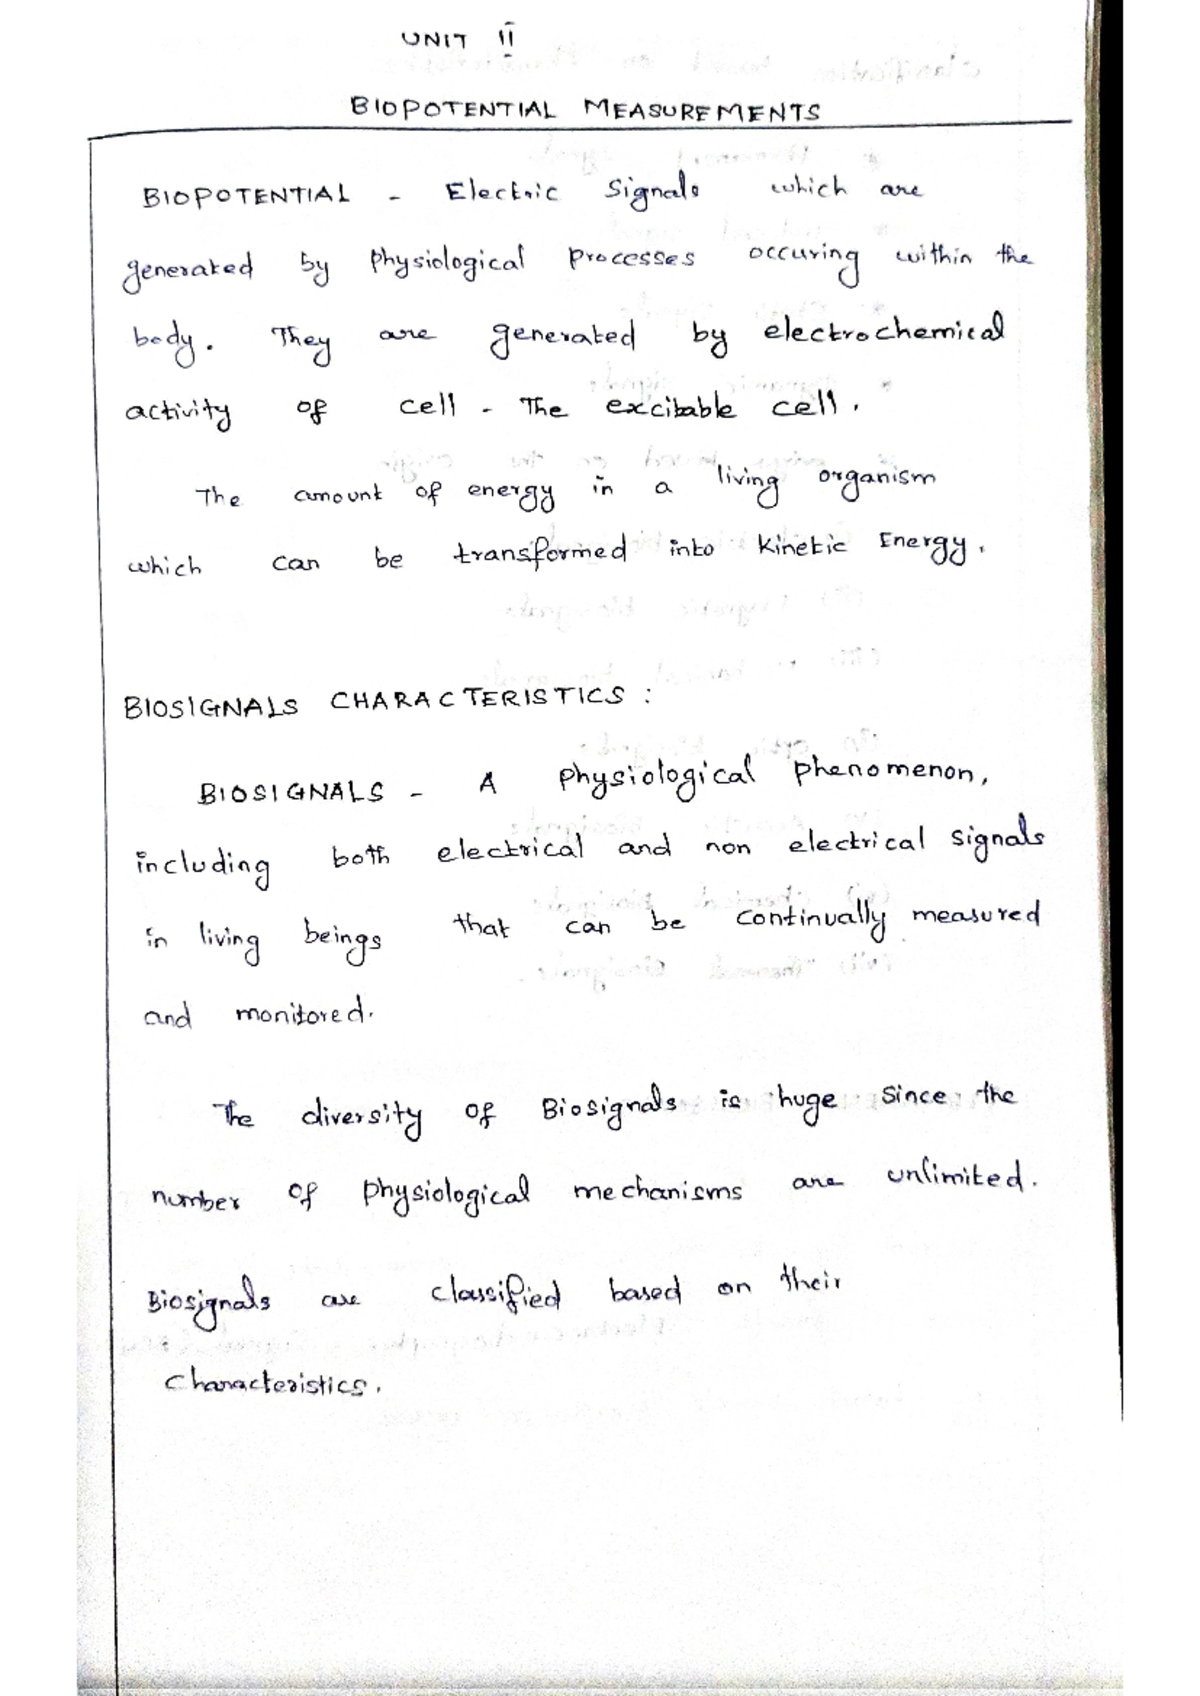 UNIT II
BIOPOTENTIAL MEASUREMENTS
BIOPOTENTIAL - Electric Signals which are
generated by physiological processes occuring within the
body. They are generated by electrochemical
activity of cell - The excitable cell.
The amount of energy in a living organism
which can be transformed into Kinetic Energy.
BIOSIGNALS CHARACTERISTICS :
BIOSIGNALS - A physiological phenomenon,
including both electrical and non electrical signals
in living beings that can be continually measured
and monitored.
The diversity of Biosignals is huge since the
number of physiological mechanisms are unlimited.
Biosignals are classified based on their
characteristics.